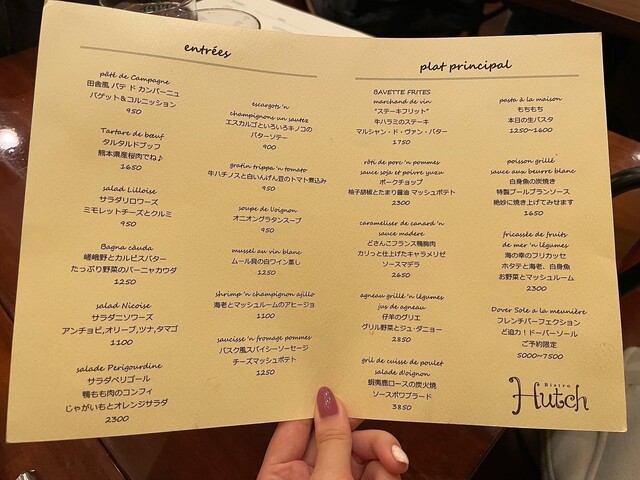 entrées
pâté de Campagne
田舎風 パテ ド カンパーニュ
バゲット＆コルニッション
950
Tartare de bœuf
タルタルドブッフ
熊本県産桜肉でね♪
1650
salad Lilloise
サラダリロワーズ
ミモレットチーズとクルミ
950
Bagna càuda
嵯峨野とカルピスバター
たっぷり野菜のバーニャカウダ
1250
salad Nicoise
サラダニソワーズ
アンチョビ,オリーブ,ツナ,タマゴ
1100
salade Perigourdine
サラダペリゴール
鴨もも肉のコンフィ
じゃがいもとオレンジサラダ
2300
escargots 'n
champignons un sautez
エスカルゴといろいろキノコの
バターソテー
900
gratin trippa 'n tomato
牛ハチノスと白いんげん豆のトマト煮込み
950
soupe de Voignon
オニオングラタンスープ
950
mussel au vin blanc
ムール貝の白ワイン蒸し
1250
shrimp 'n champignon ajillo
海老とマッシュルームのアヒージョ
1100
saucisse 'n fromage pommes
バスク風スパイシーソーセージ
チーズマッシュポテト
1250
plat principal
BAVETTE FRITES
marchand de vin
"ステーキフリット"
牛ハラミのステーキ
マルシャン・ド・ヴァン・バター
1750
rôti de porc 'n pommes
sauce soja et poivre yuzu
ポークチョップ
柚子胡椒とたまり醤油 マッシュポテト
2300
carameliser de canard 'n
sauce madère
どさんこフランス鴨胸肉
カリっと仕上げたキャラメリゼ
ソースマデラ
2650
agneau grillé 'n légumes
jus de agneau
仔羊のグリエ
グリル野菜とジュ・ダニョー
2850
gril de cuisse de poulet
salade d'oignon
蝦夷鹿ロースの炭火焼
ソースポワブラード
3850
pasta à la maison
もちもち
本日の生パスタ
1250~1600
poisson grillé
sauce aux beurre blanc
白身魚の炭焼き
特製ブールブランソース
絶妙に焼き上げてみせます
1650
fricassée de fruits
de mer 'n légumes
海の幸のフリカッセ
ホタテと海老、白身魚
お野菜とマッシュルーム
2300
Dover Sole a la meunière
フレンチパーフェクション
ど迫力！ドーバーソール
ご予約限定
5000~7500
Bistro
Hutch